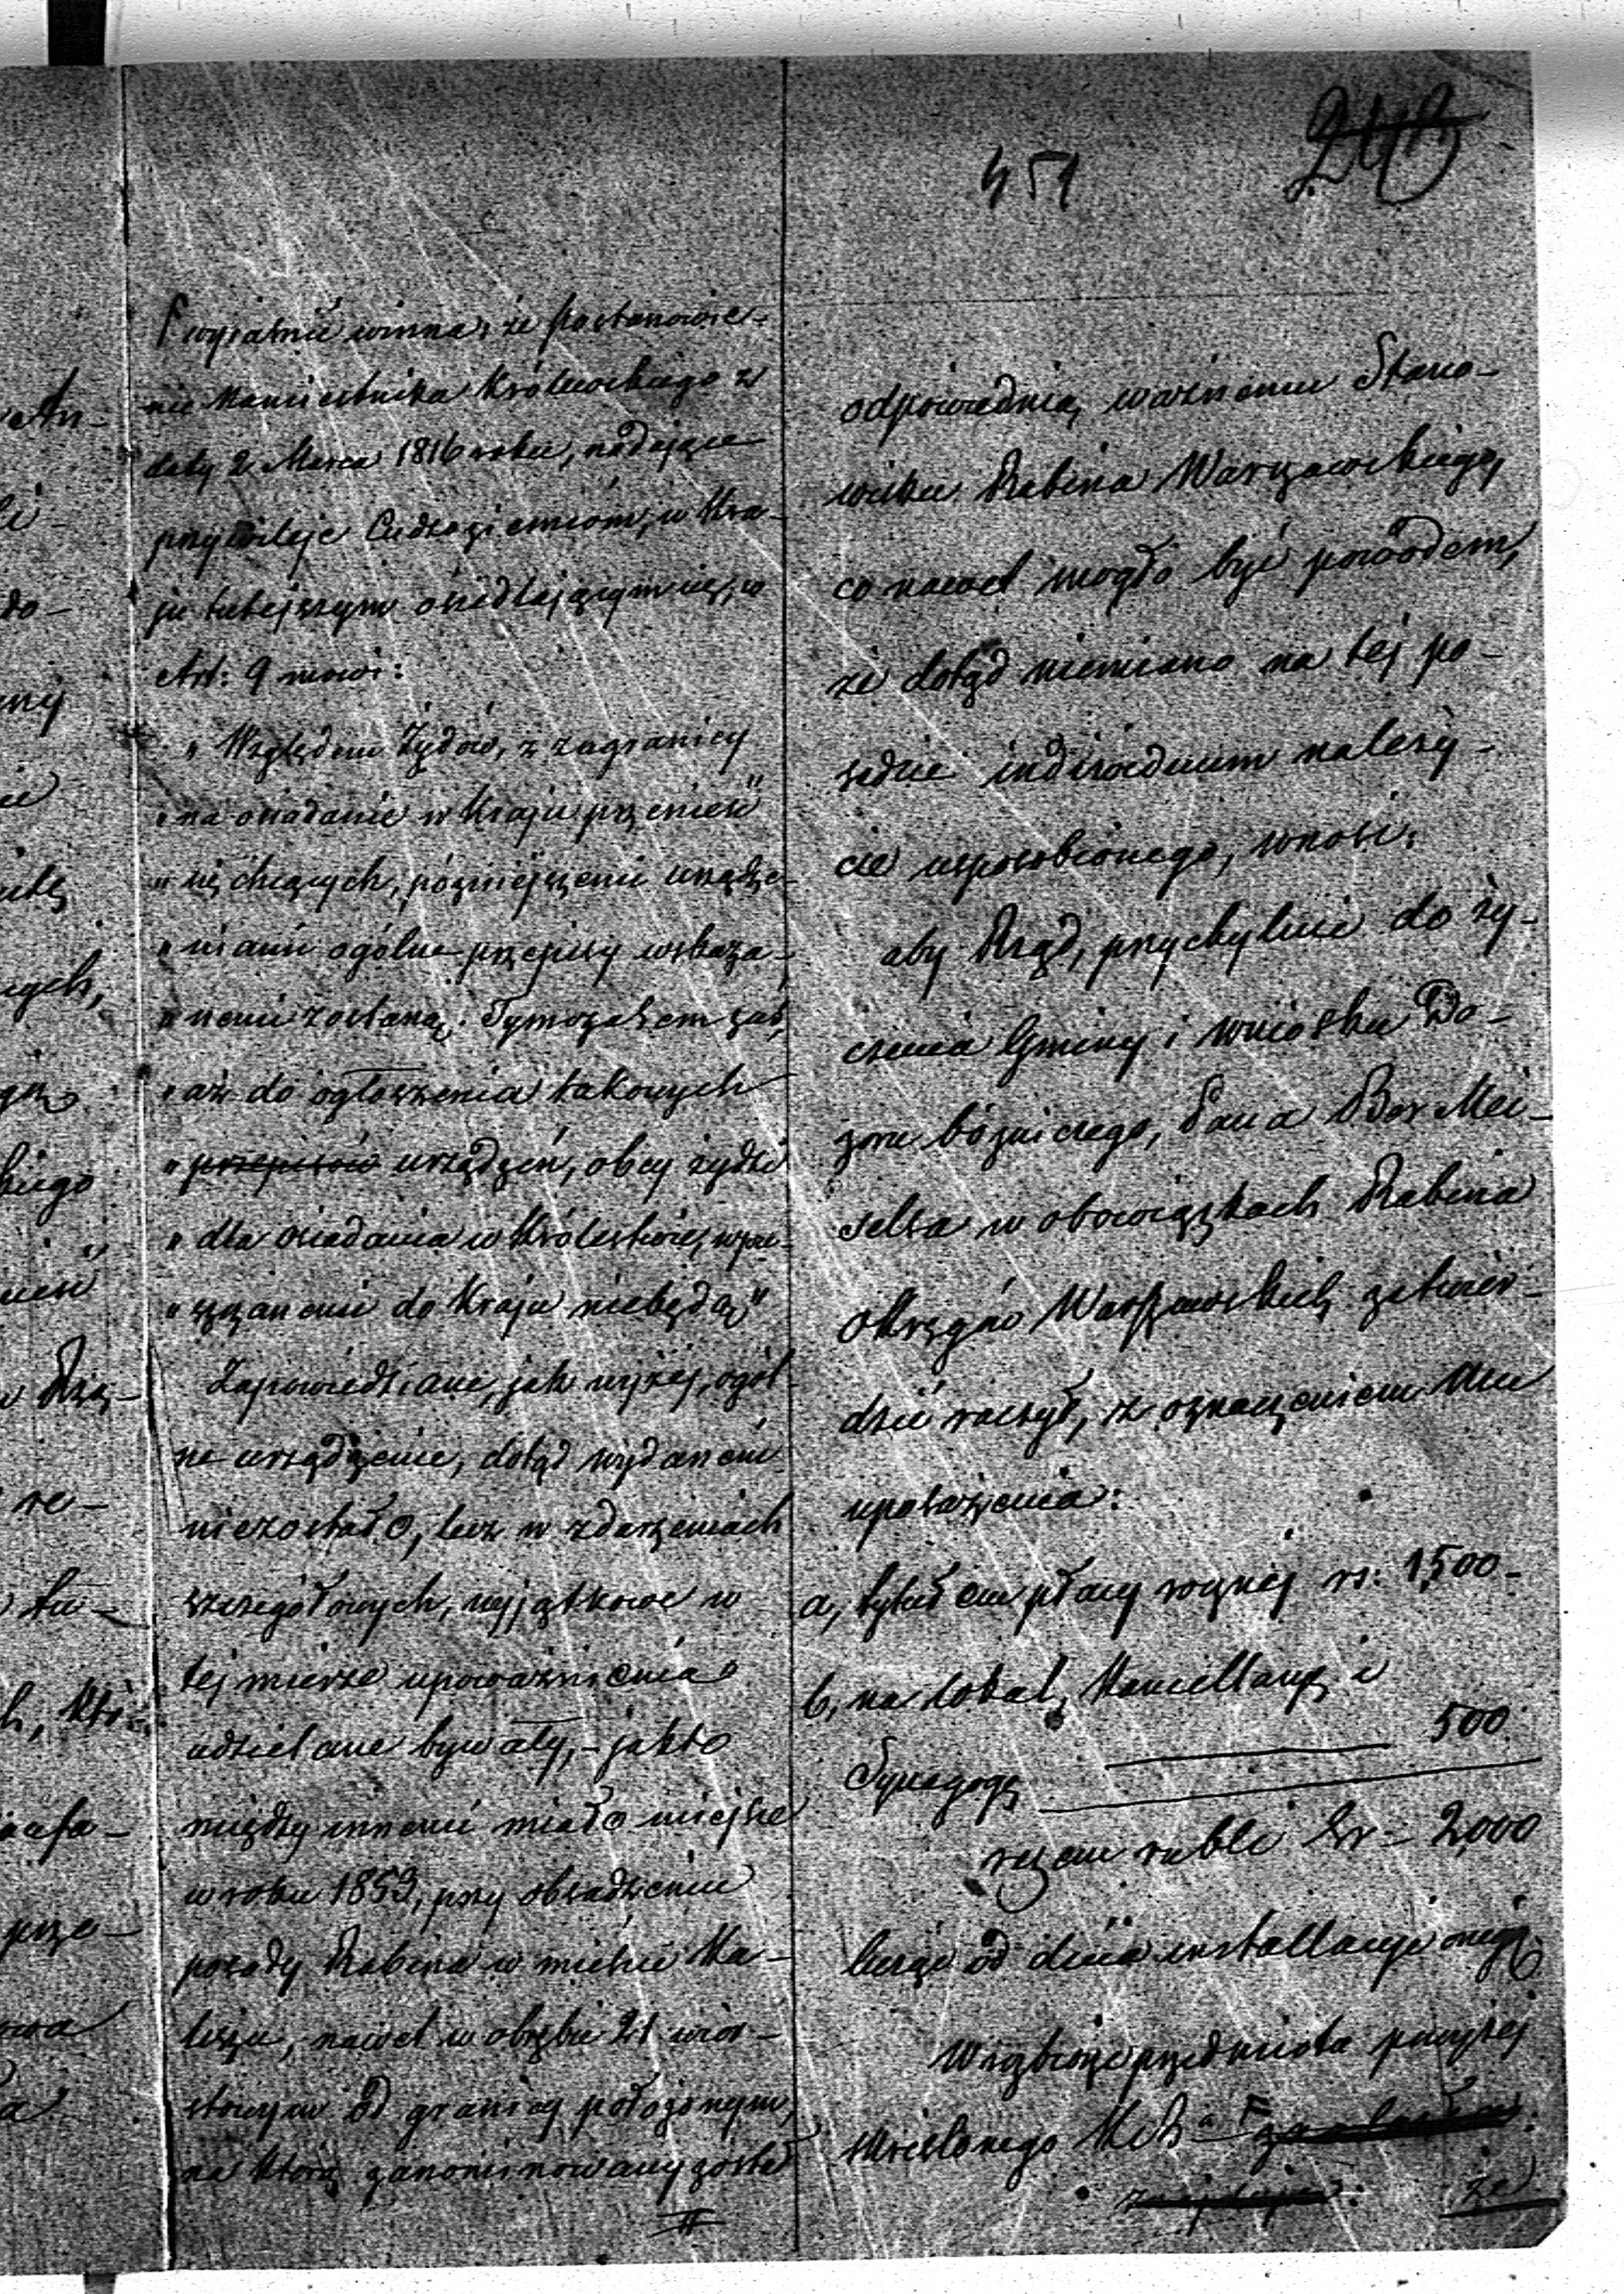 451
243
wyjaśnić winna, że Postanowie-
nie Namiestnika Królewskiego z
daty 2 Marca 1816 roku, nadające
przywileje Cudzoziemcom, w Kra-
ju tutejszym osiedlającym się, w
Art: 9 mówi:
„Względem Żydów, z zagranicy
„na osiadanie w Kraju przenieść
„się chcących, późniejszemi urządze-
„niami ogólne przepisy wskaza-
„nemi zostaną. Tymczasem zaś,
„aż do ogłoszenia takowych
„przepisów urządzeń, obcy żydzi
„dla osiadania w Królestwie, wpu-
„szczanemi do Kraju niebędą"
Zapowiedziane, jak wyżej, ogól-
ne urządzenie, dotąd wydanem
niezostało, lecz w zdarzeniach
szczegółowych, wyjątkowe w
tej mierze upoważnienia
udzielane bywały, – jak to
między innemi miało miejsce
w roku 1853, przy obsadzeniu
posady Rabina w mieście Ka-
liszu, nawet w obrębie 21 wior-
stowym od granicy położonym,
na którą zanominowany został
odpowiednią ważnemu Stano-
wisku Rabina Warszawskiego,
co nawet mogło być powodem,
że dotąd niemiano na tej po-
sadzie individuum należy-
cie usposobionego, wnosi:
aby Rząd, przychylnie do ży-
czenia Gminy i wniosku Do-
zoru bóżniczego, Pana Ber Mei-
selsa w obowiązkach Rabina
Okręgów Warszawskich zatwier-
dzić raczył, z oznaczeniem Mu
uposażenia:
a, tytułem płacy rocznej rs: 1,500 –
b, na lokal, Kancellarę i
Synagogę 500
razem rubli sr – 2,000
licząc od dnia installacyi onego.
W rozbiorze przedmiotu powyżej
skreślonego
że